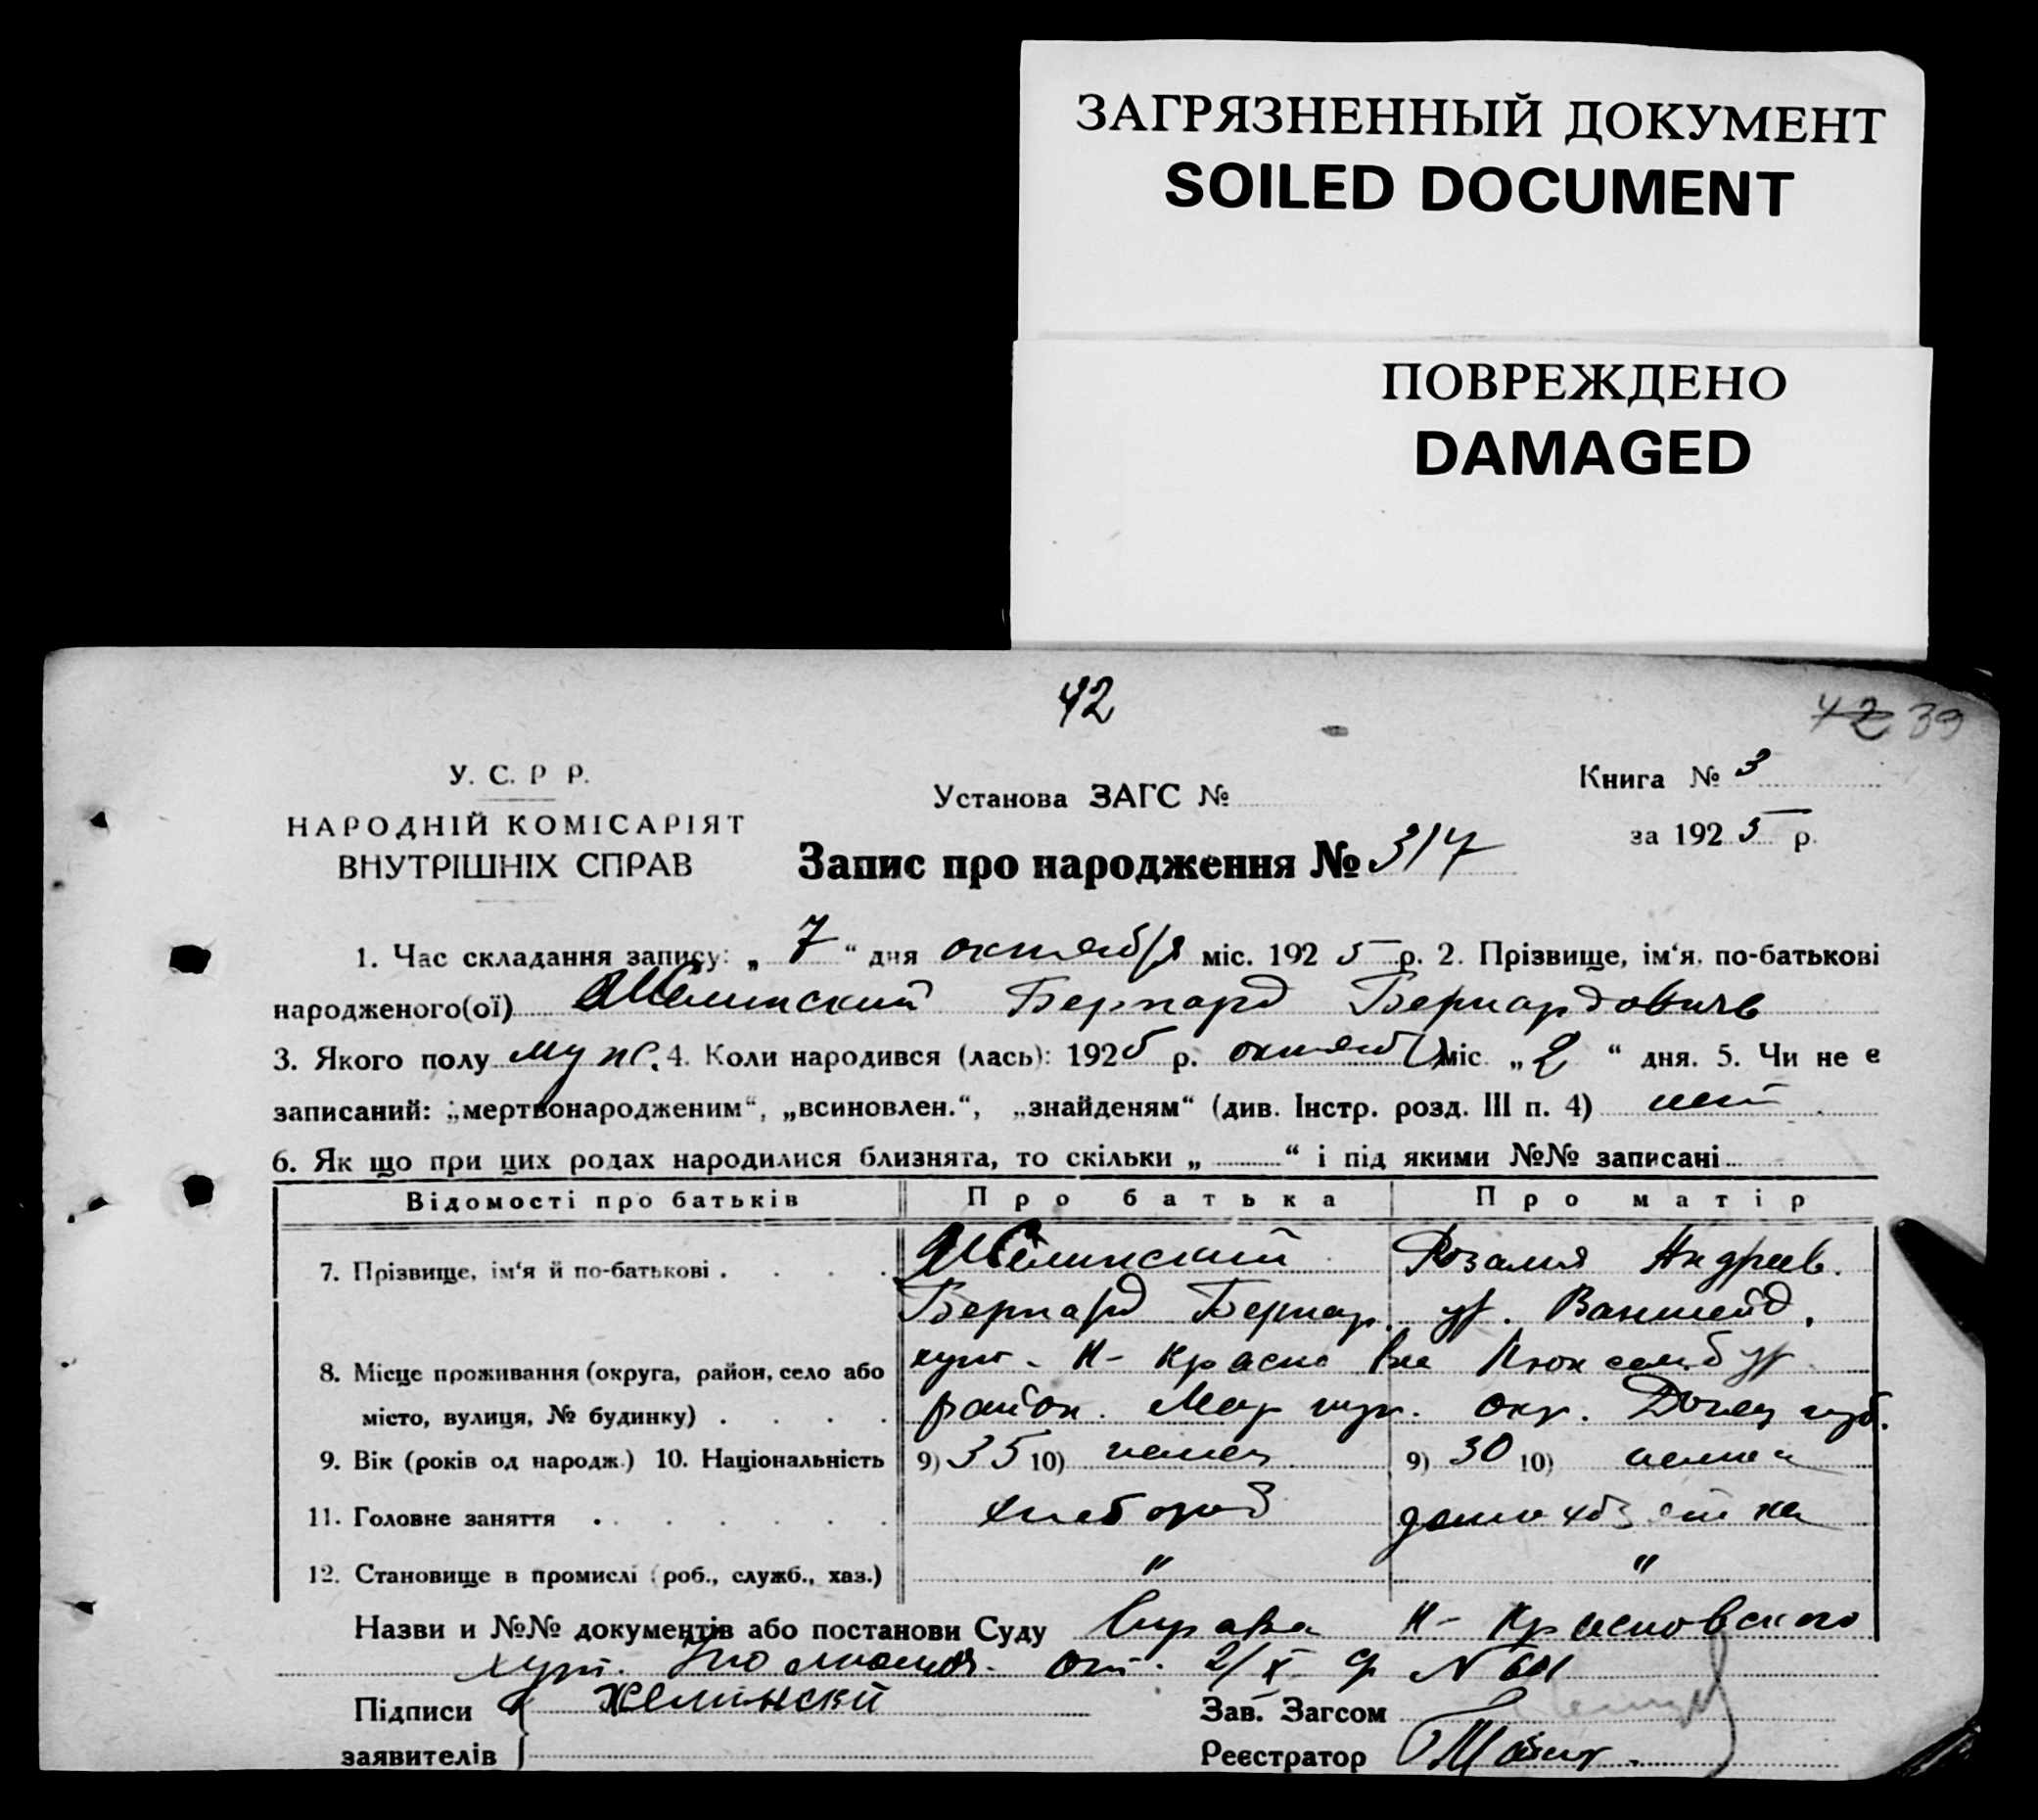 ЗАГРЯЗНЕННЫЙ ДОКУМЕНТ
SOILED DOCUMENT
ПОВРЕЖДЕНО
DAMAGED
42
42 39
У. С. Р Р.
НАРОДНІЙ КОМІСАРІЯТ
ВНУТРІШНІХ СПРАВ
Установа ЗАГС №
Книга № 3
за 1925 р.
Запис про народження № 317
1. Час складання запису: „ 7 “ дня октября міс. 1925 р. 2. Прізвище, ім‘я, по-батькові
народженого(ої) Желинский Бернард Бернардович
3. Якого полу муж. 4. Коли народився (лась): 1925 р. октяб міс. „ 2 “ дня. 5. Чи не є
записаний: „мертвонародженим“, „всиновлен.“, „знайденям“ (див. Інстр. розд. III п. 4) нет
6. Як що при цих родах народилися близнята, то скільки „ “ і під якими №№ записані
Відомості про батьків Про батька Про матір
7. Прізвище, ім‘я й по-батькові . . . . Желинский Розалия Андреев.
Бернард Бернар. ур. Ваншейд.
8. Місце проживання (округа, район, село або хут. Н- Красно Люксембур.
місто, вулиця, № будинку) . . . . район. Мар окр. Донец губ.
9. Вік (років од народж.) 10. Національність 9) 35 10) немец 9) 30 10) немка
11. Головне заняття . . . . . . хлебороб домохозяйка
12. Становище в промислі (роб., служб., хаз.) " "
Назви и №№ документів або постанови Суду Справка Н- Красновского
хут. от. 2/X №
Підписи Желински
заявителів
Зав. Загсом
Реєстратор